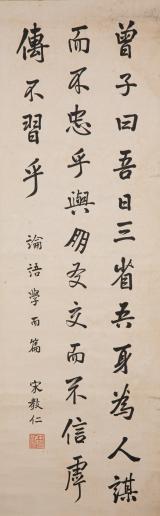 曾子曰吾日三省吾身為人謀
而不忠乎與朋友交而不信乎
傳不習乎
論語學而篇 宋教仁